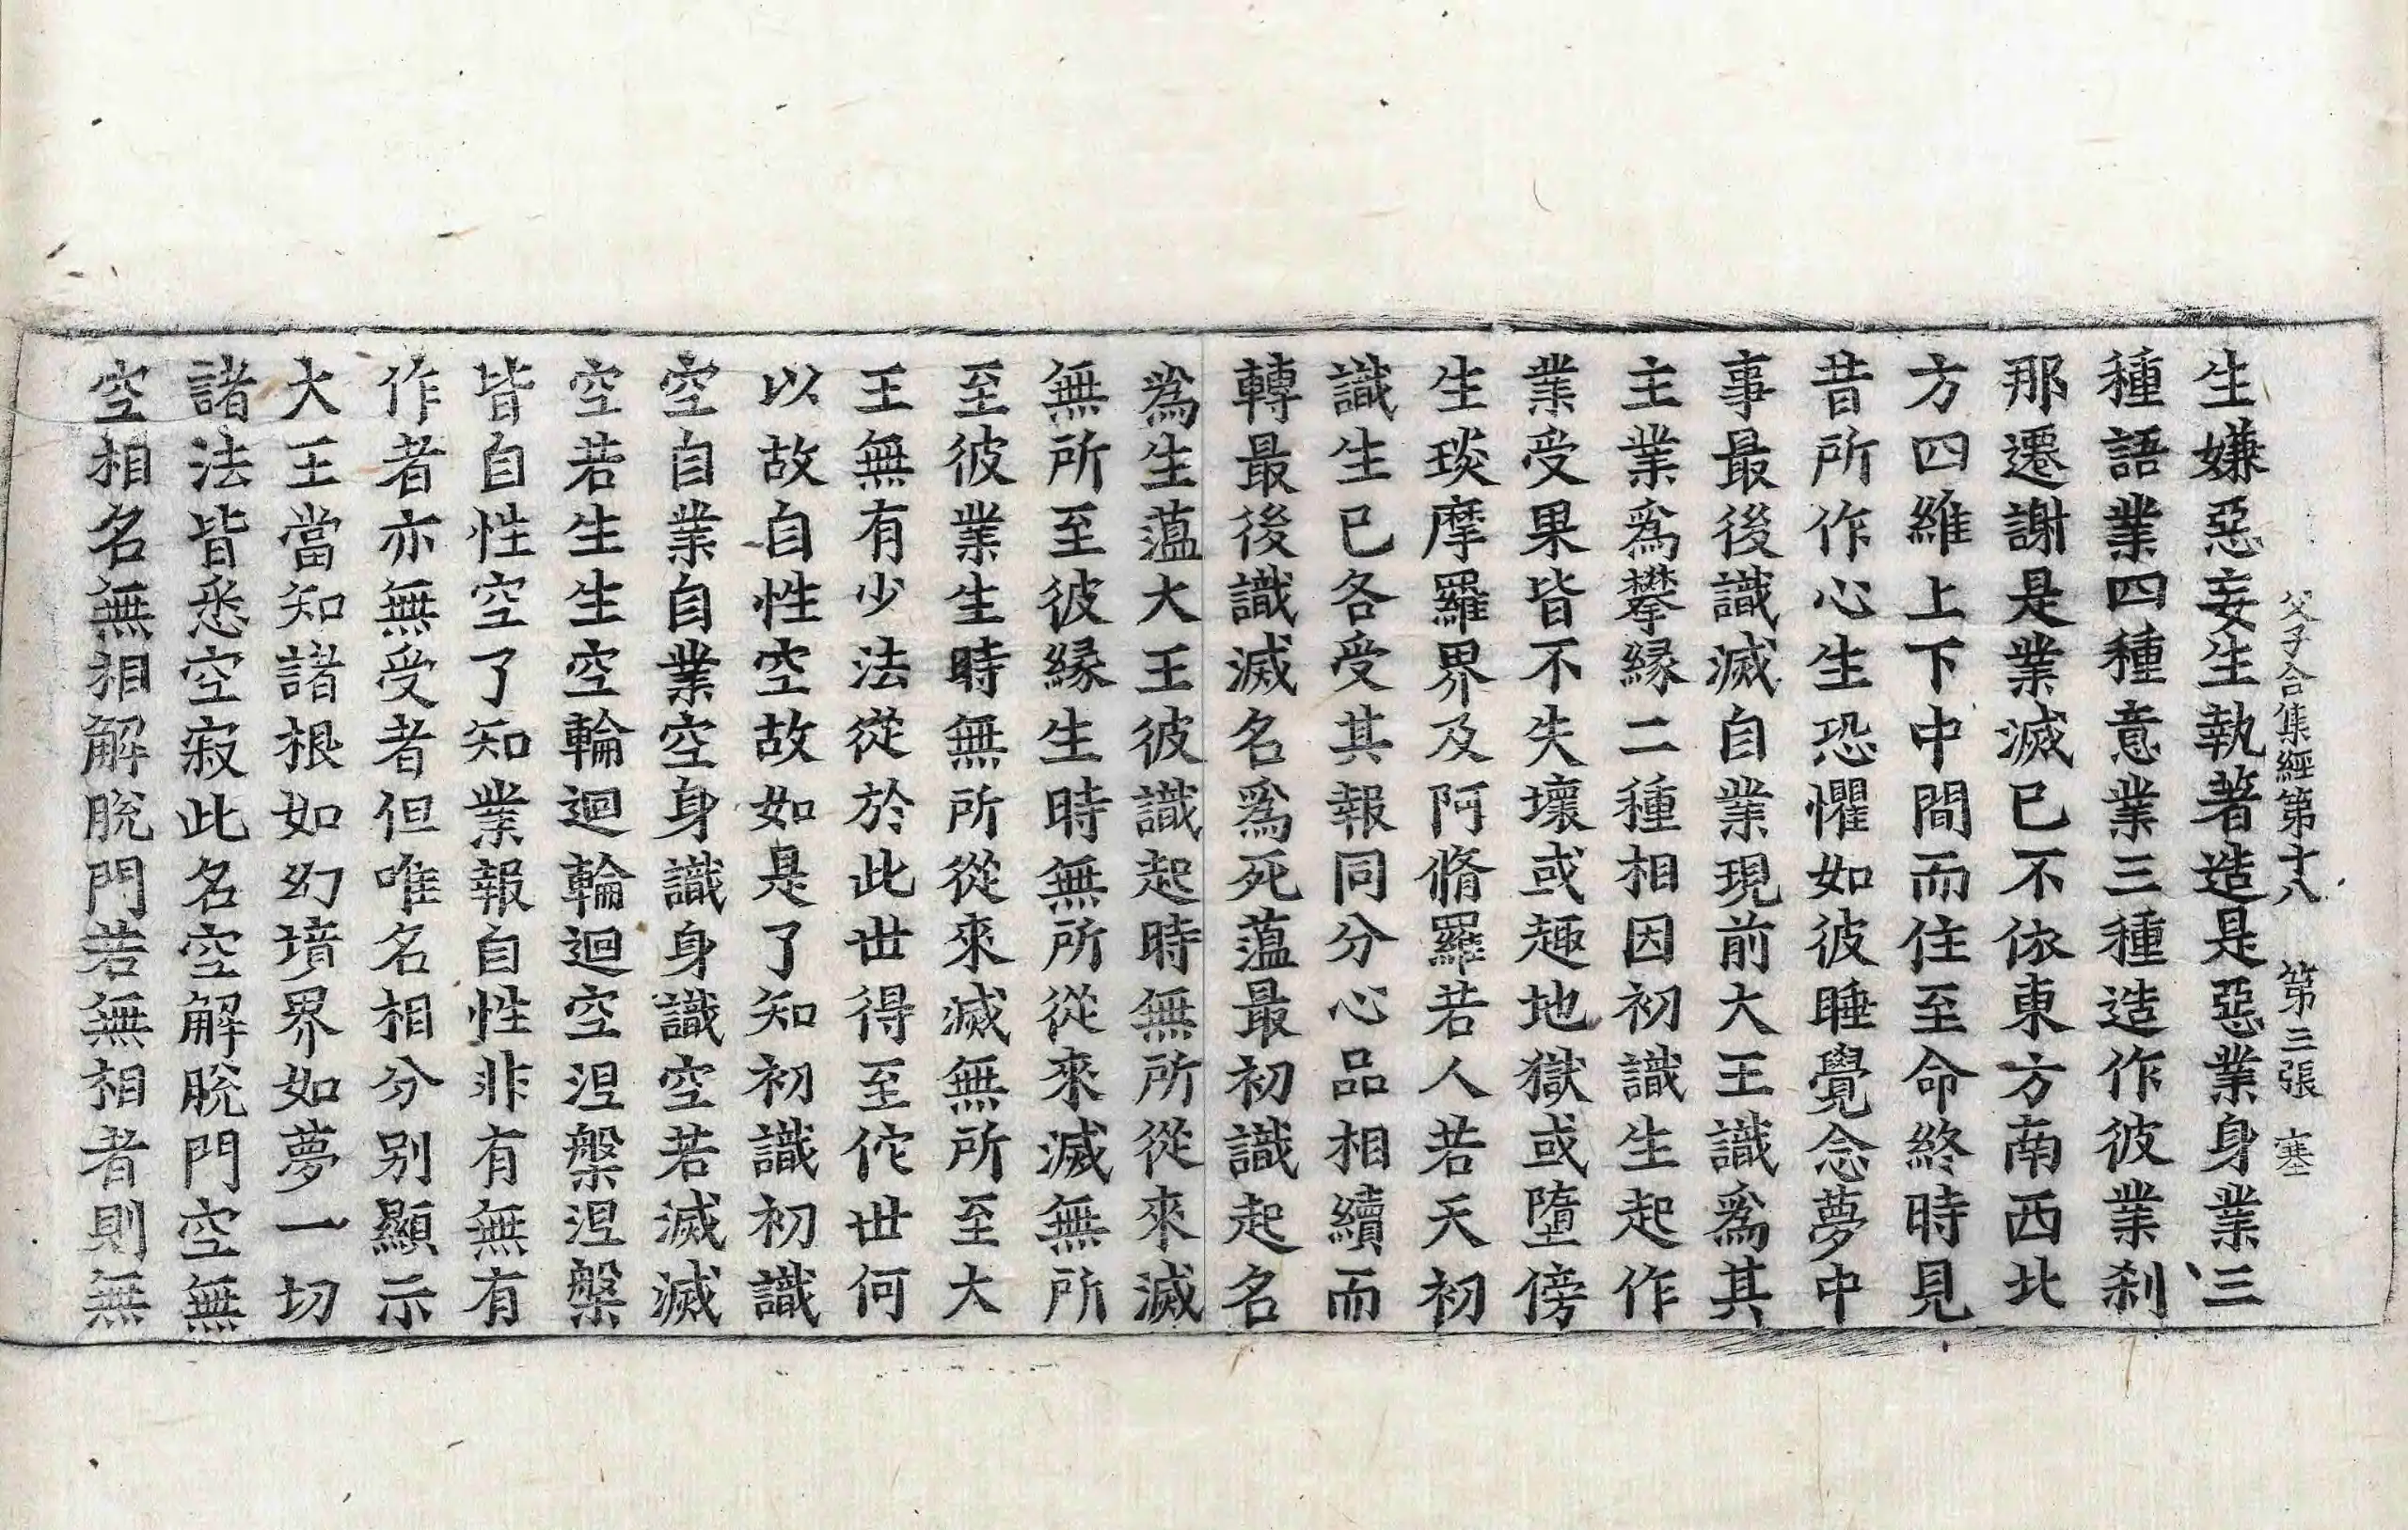 父子合集經第十八　第三張　塞
生嫌惡妄生執著造是惡業身業三
種語業四種意業三種造作彼業刹
那遷謝是業滅已不依東方南西北
方四維上下中間而住至命終時見
昔所作心生恐懼如彼睡覺念夢中
事最後識滅自業現前大王識爲其
主業爲攀緣二種相因初識生起作
業受果皆不失壞或趣地獄或墮傍
生琰摩羅界及阿脩羅若人若天初
識生已各受其報同分心品相續而
轉最後識滅名爲死薀最初識起名
爲生薀大王彼識起時無所從來滅
無所至彼緣生時無所從來滅無所
至彼業生時無所從來滅無所至大
王無有少法從於此世得至佗世何
以故自性空故如是了知初識初識
空自業自業空身識身識空若滅滅
空若生生空輪迴輪迴空涅槃涅槃
皆自性空了知業報自性非有無有
作者亦無受者但唯名相分別顯示
大王當知諸根如幻境界如夢一切
諸法皆悉空寂此名空解脫門空無
空相名無相解脫門若無相者則無